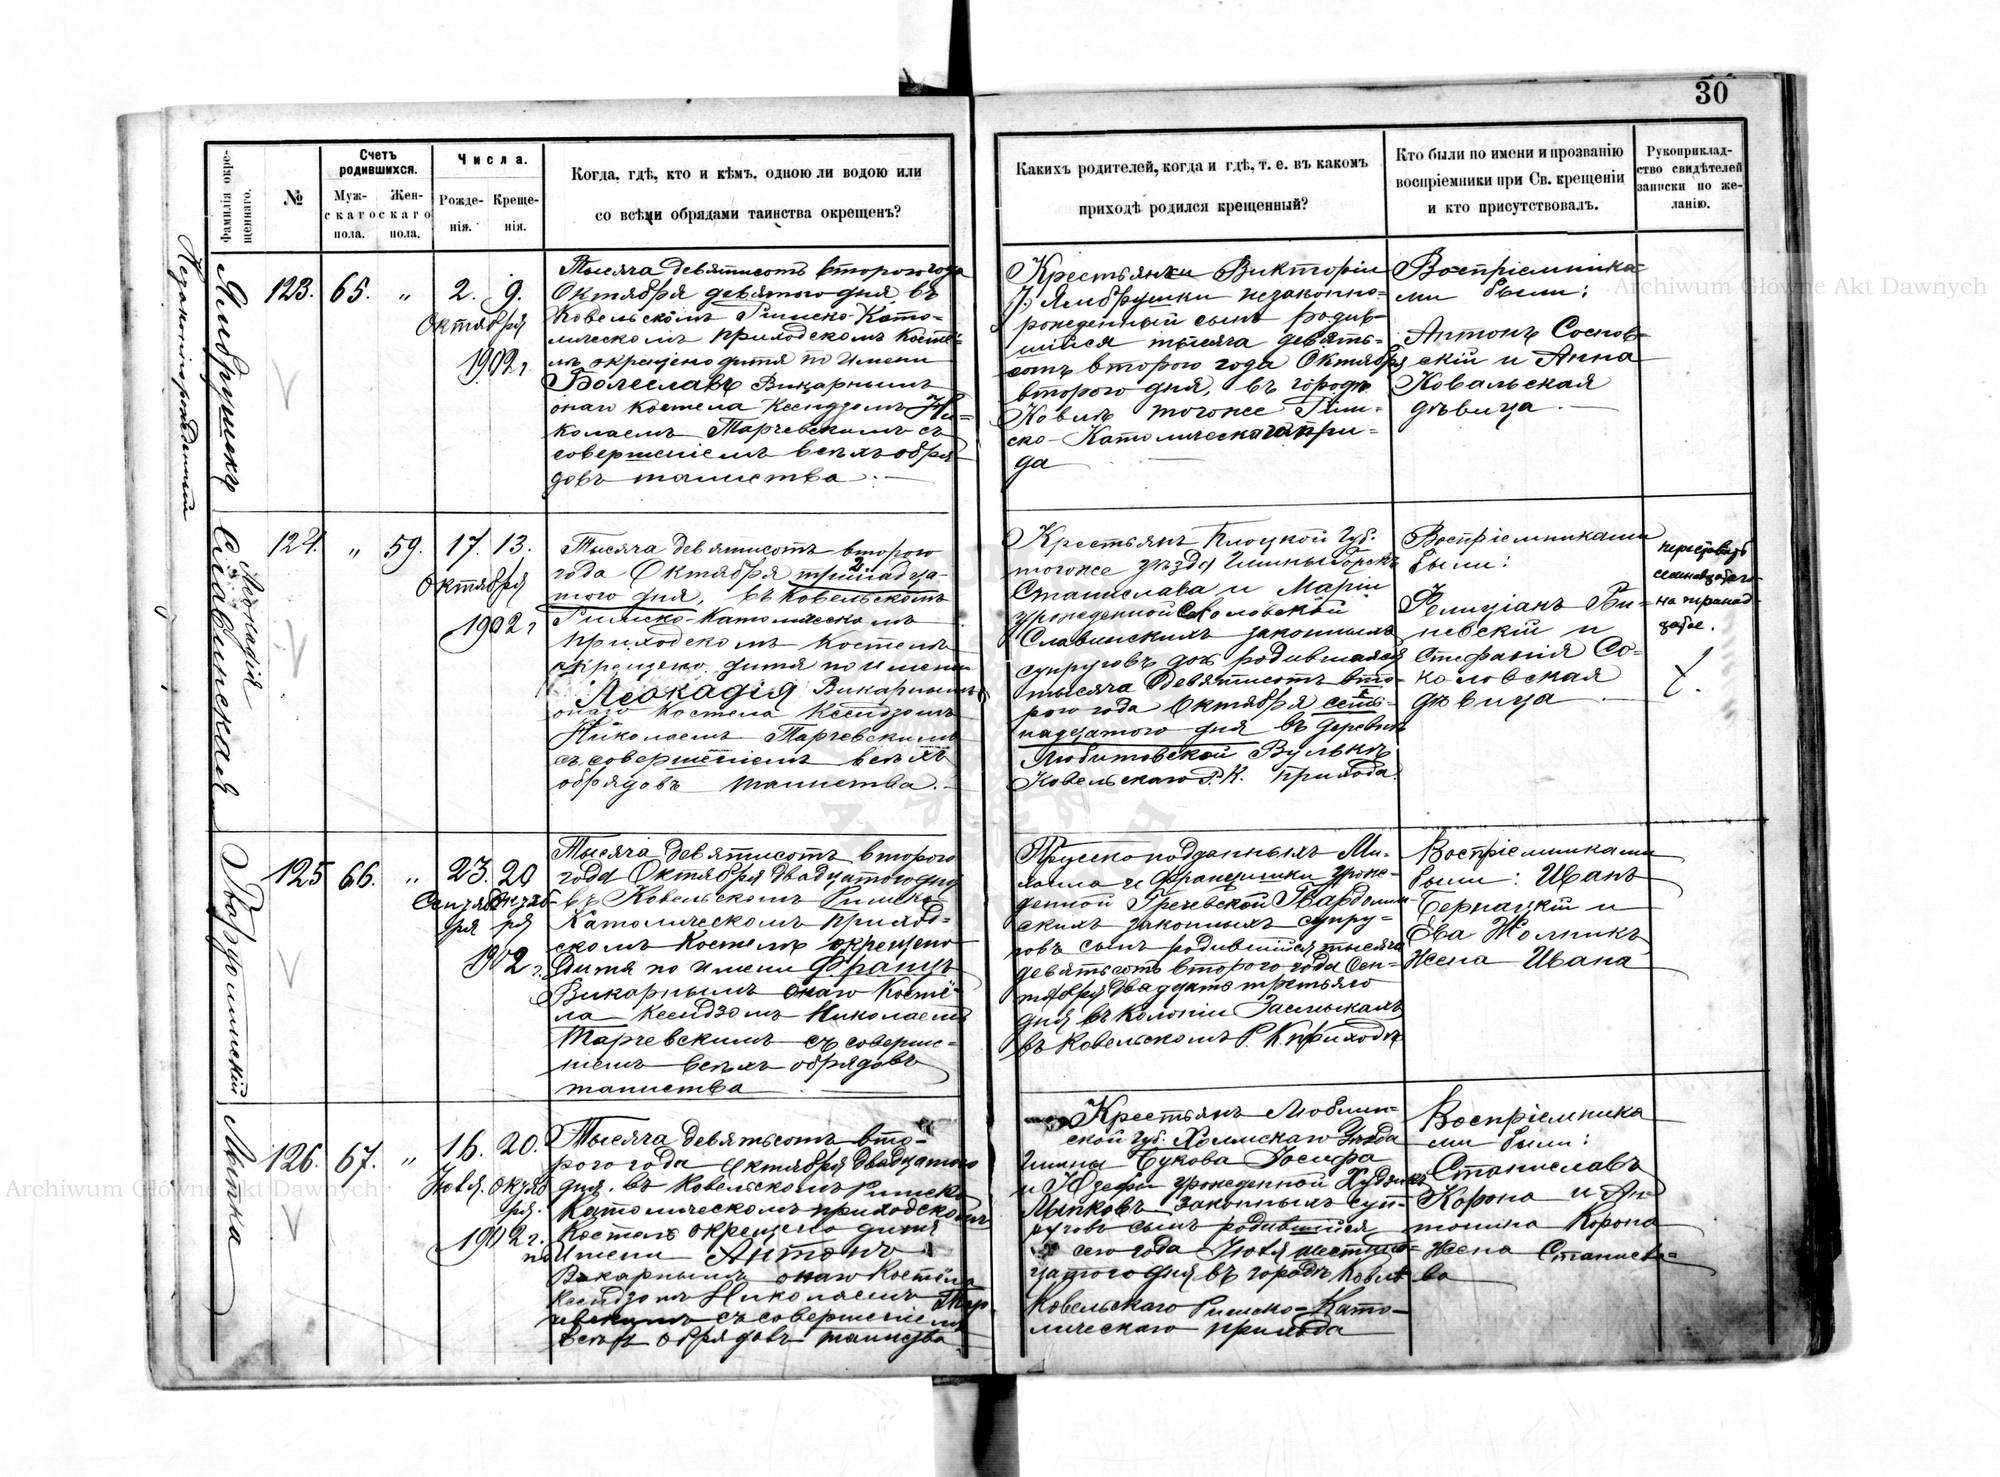 30
Фамилія окре-
щеннаго.
№
Счетъ
родившихся.
Муж-
скаго
пола.
Жен-
скаго
пола.
Числа.
Рожде-
нія.
Креще-
нія.
Когда, гдѣ, кто и кѣмъ, одною ли водою или
со всѣми обрядами таинства окрещенъ?
Какихъ родителей, когда и гдѣ, т. е. въ какомъ
приходѣ родился крещенный?
Кто были по имени и прозванію
воспріемники при Св. крещеніи
и кто присутствовалъ.
Рукоприклад-
ство свидѣтелей
записки по же-
ланію.
Незаконнорожденный
Ямбрушекъ
123.
65.
"
2. 9.
Октября
1902 г.
Тысяча девятисотъ второго года
Октября девятого дня, въ
Ковельскомъ Римско-Като-
лическомъ приходскомъ косте-
лѣ окрещено дитя по имени
Болеславъ Викарнымъ
онаго костела Ксендзомъ Ни-
колаемъ Тарчевскимъ съ
совершеніемъ всѣхъ обря
довъ таинства.
Крестьянки Викторіи
Ямбрушки незаконно-
рожденный сынъ родив-
шійся тысяча девять-
сотъ второго года Октября
второго дня, въ городѣ
Ковлѣ тогоже Рим-
ско-Католическаго при-
да
Воспріемника-
ми были:
Антонъ Соснов-
скій и Анна
Ковальская
дѣвица.
Славинская
Леокадія
124.
"
59.
17. 13.
Октября
1902 г
Тысяча девятисотъ второго
года Октября тринадца-
того дня, въ Ковельскомъ
Римско-Католическомъ
приходскомъ костелѣ
окрещено дитя по имени
Леокадія Викарнымъ
онаго Костела Ксендзомъ
Николаемъ Тарчевскимъ
съ совершеніемъ всѣхъ
обрядовъ таинства.
Крестьянъ Плоцкой Губ.
тогоже уѣзда Гмины
Станислава и Маріи
урожденной Соколовской
Славинскихъ законныхъ
супруговъ дочь родившаяся
тысяча девятисотъ вто-
рого года Октября семь-
надцатого дня въ деревнѣ
Любитовской Вулькѣ
Ковельскаго Р. К. прихода.
Воспріемниками
были:
Фелиціанъ Би-
невскій и
Стефанія Со-
коловская
дѣвица
на тринад-
цатое.
Твардоминскій
125
66.
"
23. 20
Сентяб Октяб-
ря ря
1902 г.
Тысяча девятисотъ второго
года Октября двадцатого дня
въ Ковельскомъ Римско-
Католическомъ приход-
скомъ костелѣ окрещено
дитя по имени Францъ
Викарнымъ онаго Косте-
ла Ксендзомъ Николаемъ
Тарчевскимъ съ соверше-
ніемъ всѣхъ обрядовъ
таинства
Прусскоподданныхъ Ми-
хаила и Францишки урож-
денной Гречевской Твардомин-
скихъ законныхъ супру-
говъ сынъ родившійся тысяча
девятьсотъ второго года Сен-
тября двадцать третьяго
дня въ Колоніи Засмыкахъ
въ Ковельскомъ Р. К. приходѣ
Воспріемниками
были: Иванъ
Бернацкій и
Ева Жолникъ
Жена Ивана
Лыпка
126.
67.
"
16. 20.
Ноя. Октяб
ря.
1902 г.
Тысяча девятьсотъ вто-
рого года Октября двадцатого
дня, въ Ковельскомъ Римско
Католическомъ приходскомъ
Костелѣ окрещено дитя
по имени Антонъ
Викарнымъ онаго Костела
Ксендзомъ Николаемъ Тар-
чевскимъ съ совершеніемъ
всѣхъ обрядовъ таинства
Крестьянъ Люблин-
ской Губ. Холмскаго Уѣзда
Гмины Букова Іосифа
и Юзефы урожденной
Лыпковъ законныхъ суп-
руговъ сынъ родившійся
сего года
дня въ городѣ Ковлѣ
Ковельскаго Римско-Като-
лическаго прихода
Воспріемника
ми были:
Станиславъ
Корона и Ан-
тонина Корона
жена Станисла-
ва
Archiwum Główne Akt Dawnych
Archiwum Główne Akt Dawnych